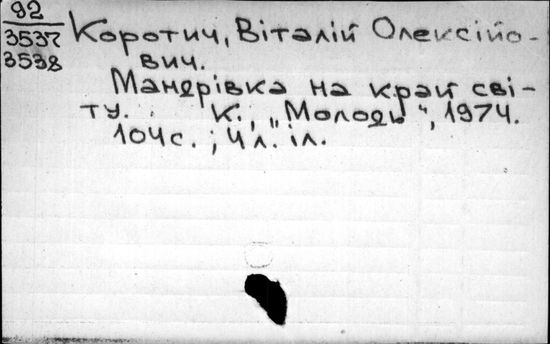 92
3537
3538
Коротич, Віталій Олексійо-
вич.
Мандрівка на край сві-
ту. К., „Молодь“, 1974.
104с.; 4л. іл.